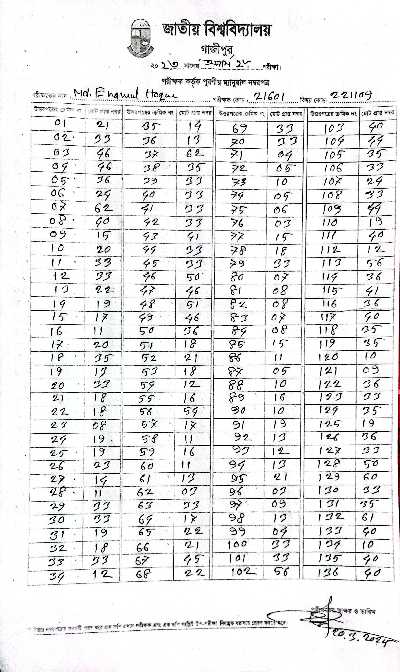 জাতীয় বিশ্ববিদ্যালয়
গাজীপুর
পরীক্ষক কর্তৃক পূরণীয় ম্যানুয়াল নম্বরপত্র
Md. Enamul Hoque পরীক্ষক কোড 21601 বিষয় কোড 221109
01 21 35 14 69 33 103 40
02 33 36 13 70 33 104 44
03 46 37 62 71 04 105 35
04 46 38 35 72 05 106 33
05 36 39 33 73 10 107 24
06 24 40 33 74 05 108 33
07 62 41 33 75 06 109 44
08 40 42 33 76 03 110 19
09 15 43 41 77 15 111 40
10 20 44 33 78 18 112 12
11 33 45 33 79 33 113 56
12 33 46 50 80 07 114 36
13 22 47 46 81 08 115 41
14 19 48 51 82 08 116 36
15 17 49 46 83 07 117 40
16 11 50 36 84 08 118 35
17 20 51 18 85 15 119 35
18 35 52 21 86 11 120 10
19 13 53 18 87 05 121 09
20 33 54 12 88 10 122 36
21 18 55 16 89 16 123 33
22 18 56 54 90 10 124 35
23 08 57 17 91 19 125 19
24 19 58 11 92 13 126 36
25 19 59 16 93 12 127 33
26 23 60 11 94 13 128 50
27 14 61 13 95 21 129 60
28 11 62 03 96 03 130 33
29 33 63 33 97 09 131 35
30 33 64 17 98 13 132 61
31 19 65 22 99 04 133 40
32 18 66 21 100 33 134 10
33 33 67 45 101 33 135 40
34 12 68 22 102 56 136 40